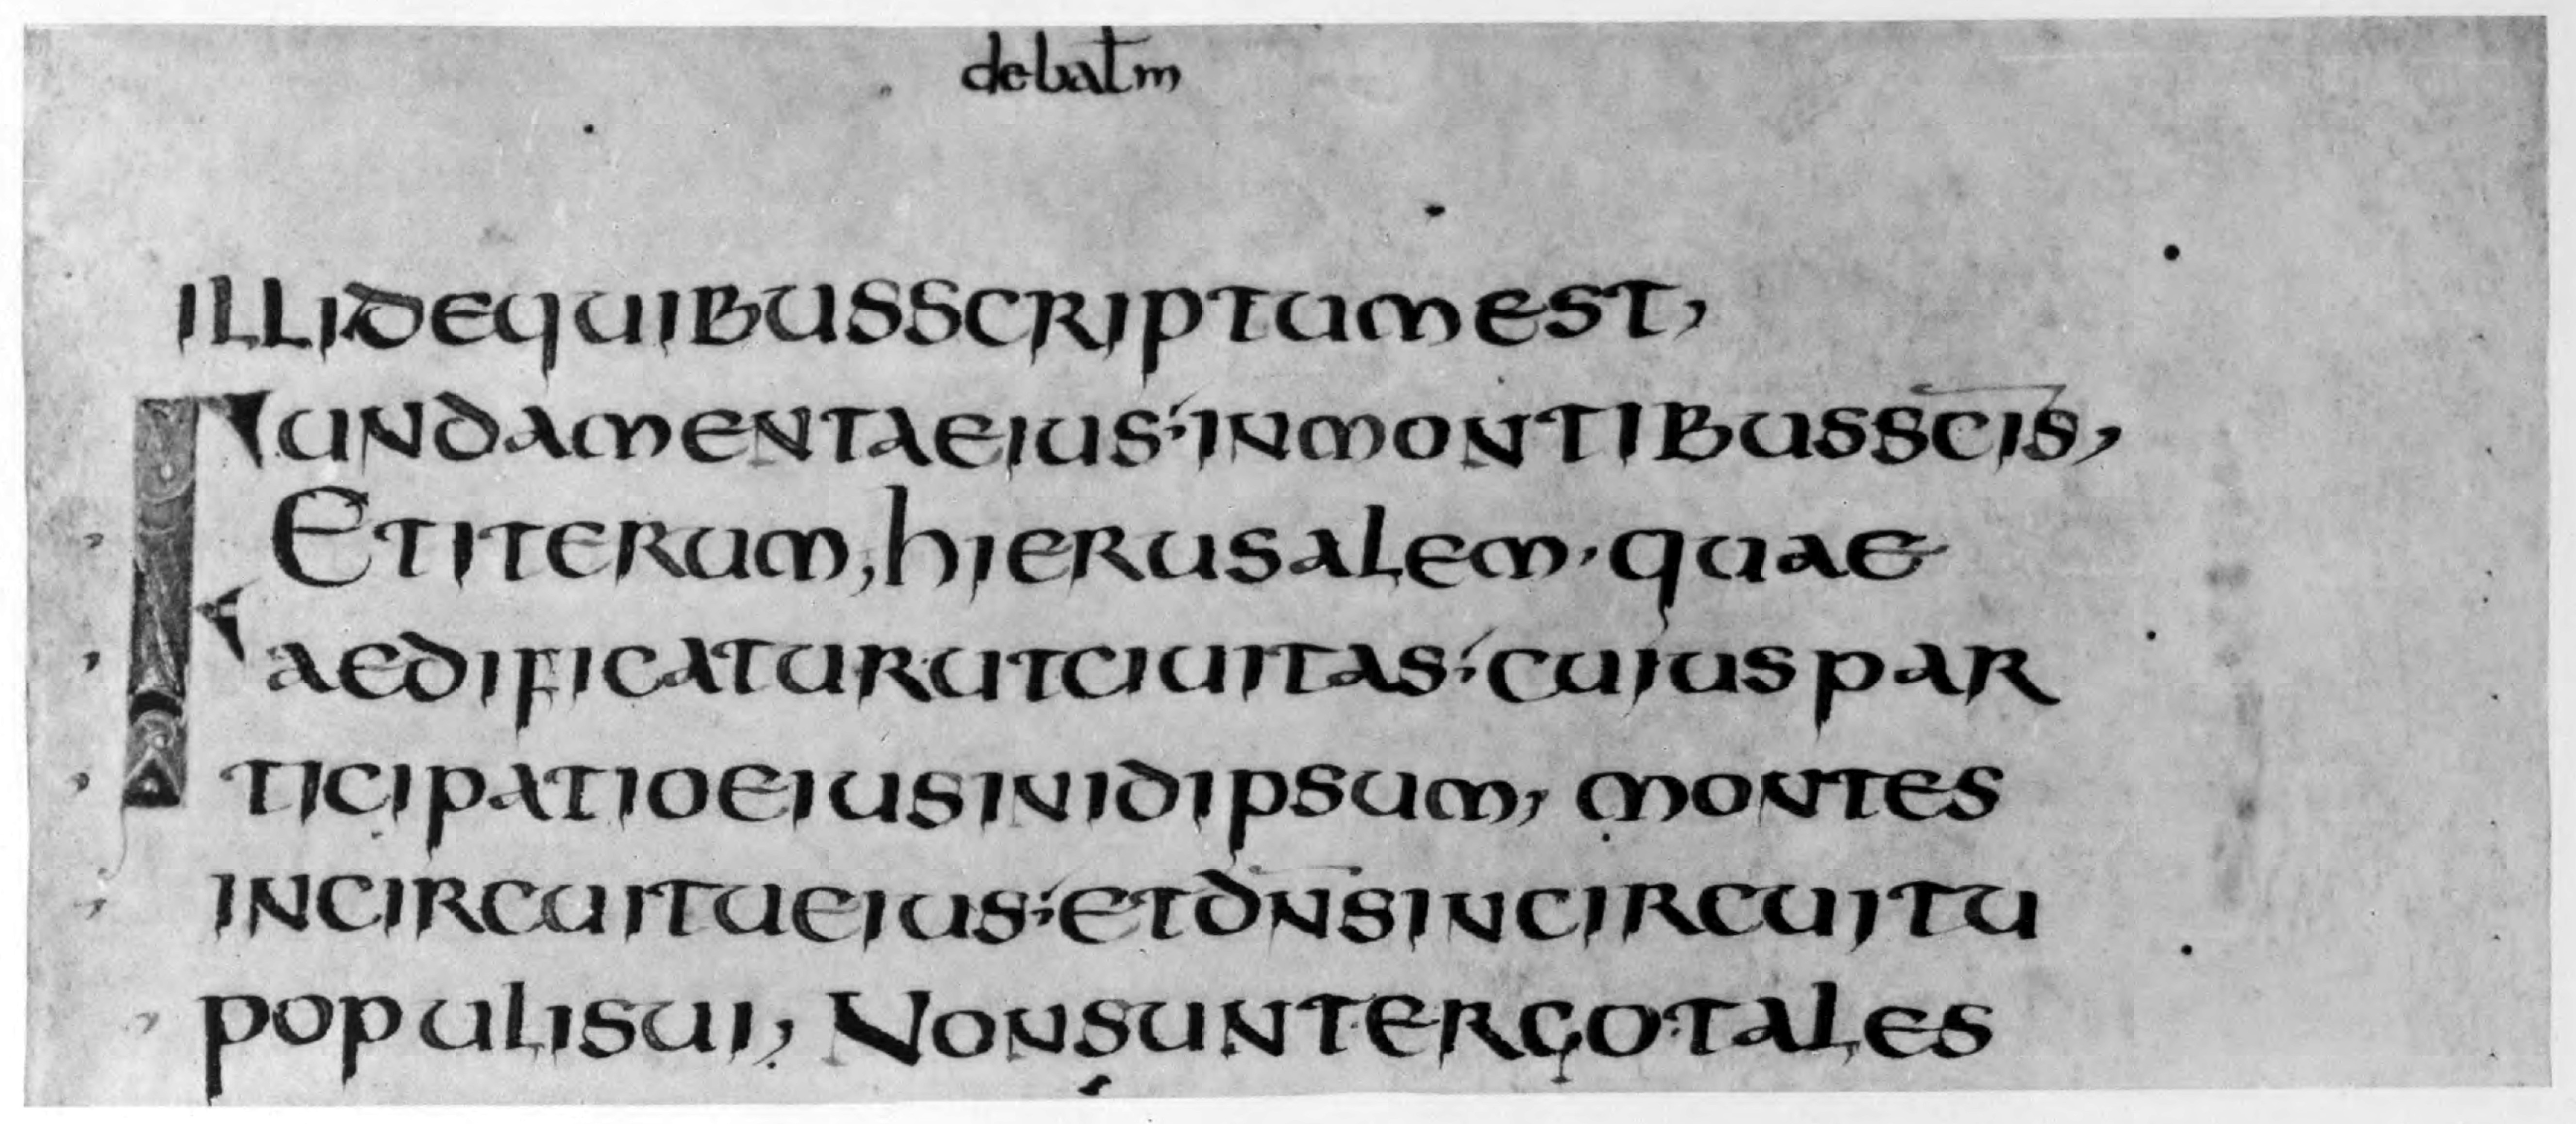 debatm
ILLIDEQUIBUSSCRIPTUMEST,
FUNDAMENTAEIUS:INMONTIBUSSCIS,
ETITERUM,hIERUSALEM·QUAE
AEDIFICATURUTCIUITAS:CUIUSPAR
TICIPATIOEIUSINIDIPSUM, MONTES
INCIRCUITUEIUS:ETDNSINCIRCUITU
POPULISUI, NONSUNTERGOTALES